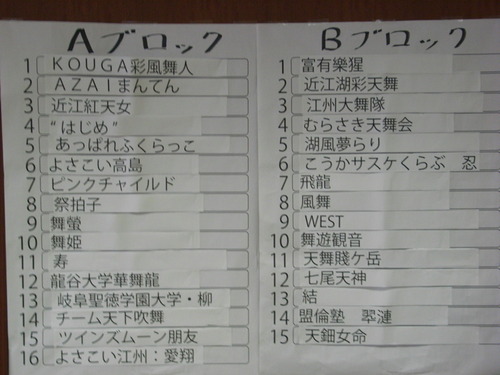 Aブロック
1 KOUGA彩風舞人
2 AZAIまんてん
3 近江紅天女
4 “はじめ”
5 あっぱれふくらっこ
6 よさこい高島
7 ピンクチャイルド
8 祭拍子
9 舞螢
10 舞姫
11 寿
12 龍谷大学華舞龍
13 岐阜聖徳学園大学・柳
14 チーム天下吹舞
15 ツインズムーン朋友
16 よさこい江州：愛翔
Bブロック
1 富有樂猩
2 近江湖彩天舞
3 江州大舞隊
4 むらさき天舞会
5 湖風夢らり
6 こうかサスケくらぶ 忍
7 飛龍
8 風舞
9 WEST
10 舞遊観音
11 天舞賤ケ岳
12 七尾天神
13 結
14 盟倫塾 翠漣
15 天鈿女命